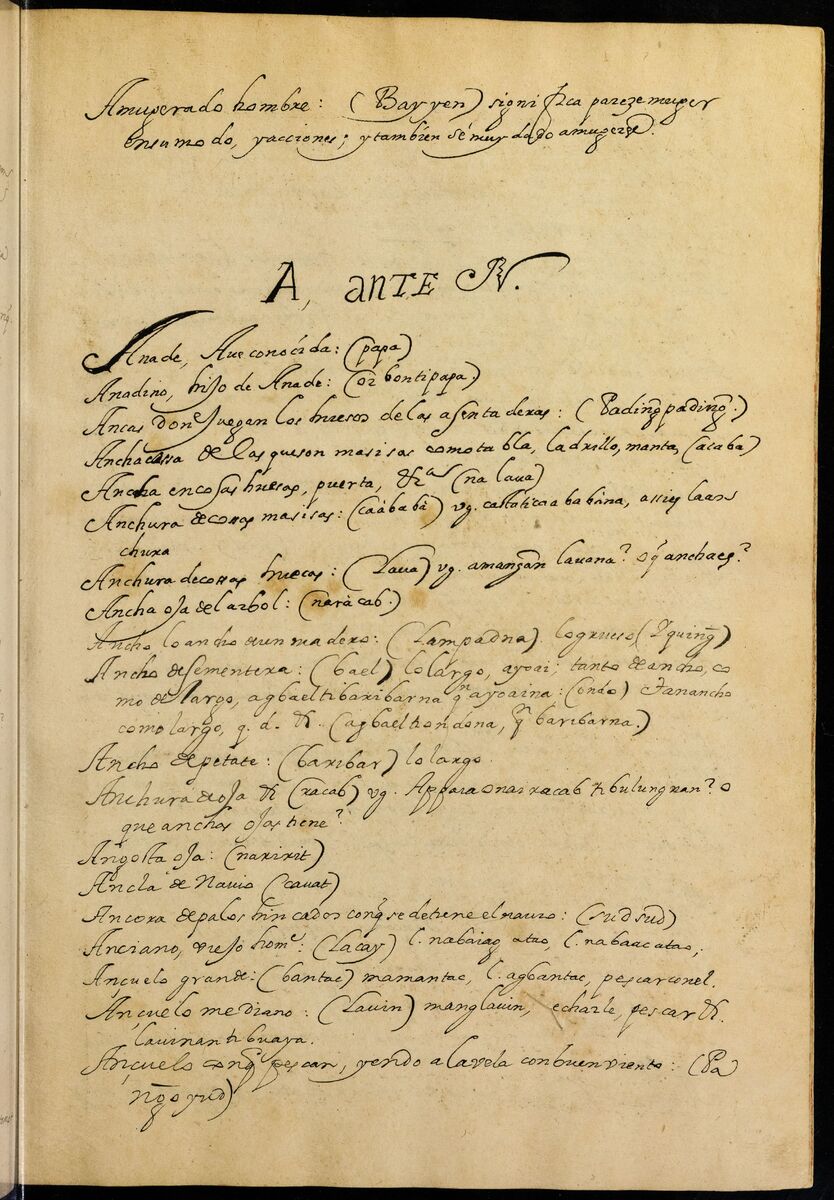 Amugerado hombre: (Bayyen) significa pareze muger
en su modo, y acciones; y tambien sè muy dado a mugeres.
A, ante N.
Anade, Aue conocida: (papa)
Anadino, hijo de Anade: (or bontipapa.)
Ancas donẽ juegan los huesos de las asentaderas: (Padinḡ padinḡ.)
Ancha cossa de las que son masisas como tabla, ladrillo, manta, (acaba)
Ancha en cosas huecas, puerta, &ᵃ (na laua)
Anchura de cosas masisas: (caàbabà) vg. ababàna, assies la an
chura
Anchura de cosas huecas: (Laua) vg. amanḡan lauana? o q̃ ancha es?
Ancha oja del arbol: (naràcab.)
Ancho lo ancho de un madero: (Lampadna). lo grueso (
Ancho de sementera: (bael) lo largo, ayoai; tanto de ancho, co
mo de largo, agbaeltibaribarna q̃ ayoaina: (ondo)
como largo, q. d. (agbaeltiondona, q̃ baribarna.)
Ancho de petate: (baribar) lo largo.
Anchura de oja (racab) vg. Appaiaonai racab ti bulungnan? o
que anchas ojas tiene?
Angosta oja: (naririt)
Ancla de Nauio (cauat)
Ancora de palos hincados conq̃ se detiene el nauio: (sudsud)
Anciano, viejo homẽ: (Lacay) l. nabaiag atao, l. nabaac atao;
Ançuelo grande: (bantac) mamantac, l. agbantac, pescar con el.
Ançuelo mediano: (Lauin) manglauin, echarle, pescar
lauinan ti buaya.
Ançuelo conq̃ pescan, yendo a la vela con buen viento: (Pa
nḡoyud)